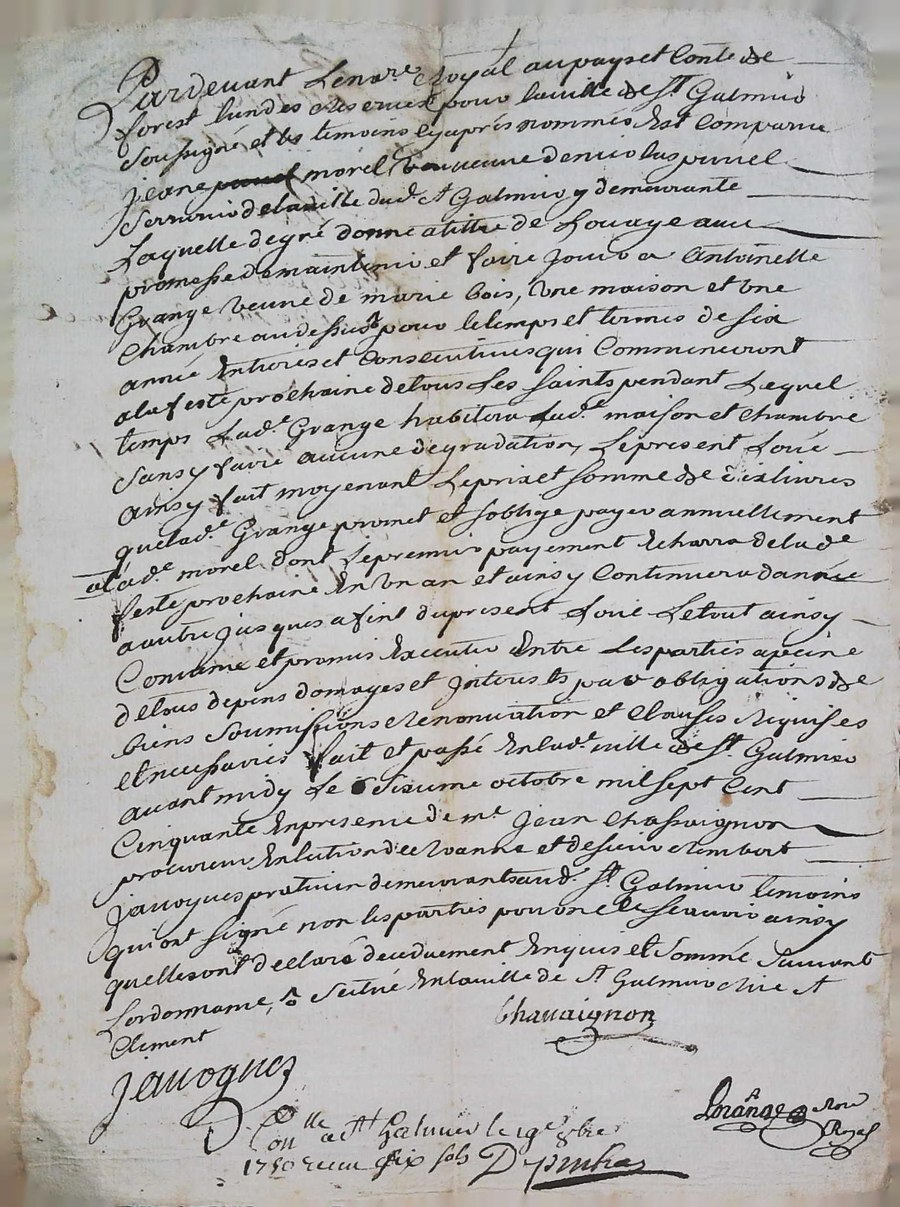 Pardevant Le nore Royal au pays et Conté de
forest lun des Reservés pour la ville de St Galmier
soussigné et les temoins cy aprés nommés Est Comparue
jeane morel veuve de nicolas prunel
serrurier de la ville dud. st Galmier y demeurante
Laquelle de gré donne a titre de Louage avec
promesse de maintenir et faire jouir a Antoinelle
Grange veuve de marie bois, une maison et une
Chambre au dessus pour le temps et termes de six
année Entiers et Consecutives qui Commenceront
a la feste prochaine de tous Les saints pendant Lequel
temps Lade. Grange habitera Lade. maison et chambre
sans y faire aucune degradation, Le present Loué
ainsy fait moyenant Le prix et somme de dix livres
que lade. Grange promet et soblige payer annuellement
a lade. morel dont Le premier payement Echerra de lade
feste prochaine En un an et ainsy Continuera dannée
a autre jusques a fint du present Loué Le tout ainsy
Convenu et promis Executer Entre Les parties a peine
de tous depens domages et Interests par obligations de
biens soumissions Renonciation et Clauses Requises
et necessaires fait et passé En lade. ville de St. Galmier
avant midy Le sixieme octobre mil sept Cent
Cinquante En presence de me. jean Chassaignon
procureur En lElection de Roanne et de sieur Rambert
Javogues praticien demeurants aud. St. Galmier temoins
qui ont signé non les parties pour ne le scavoir ainsy
quelles ont declaré de ce duement Enquis et sommé suivant
Lordonnance, situé En la ville de st Galmier Rue st
Clement
Chavaignon
Javogues
Conlle a st Galmier le 19e 8bre
1750 Receu six sols
nore
Royal